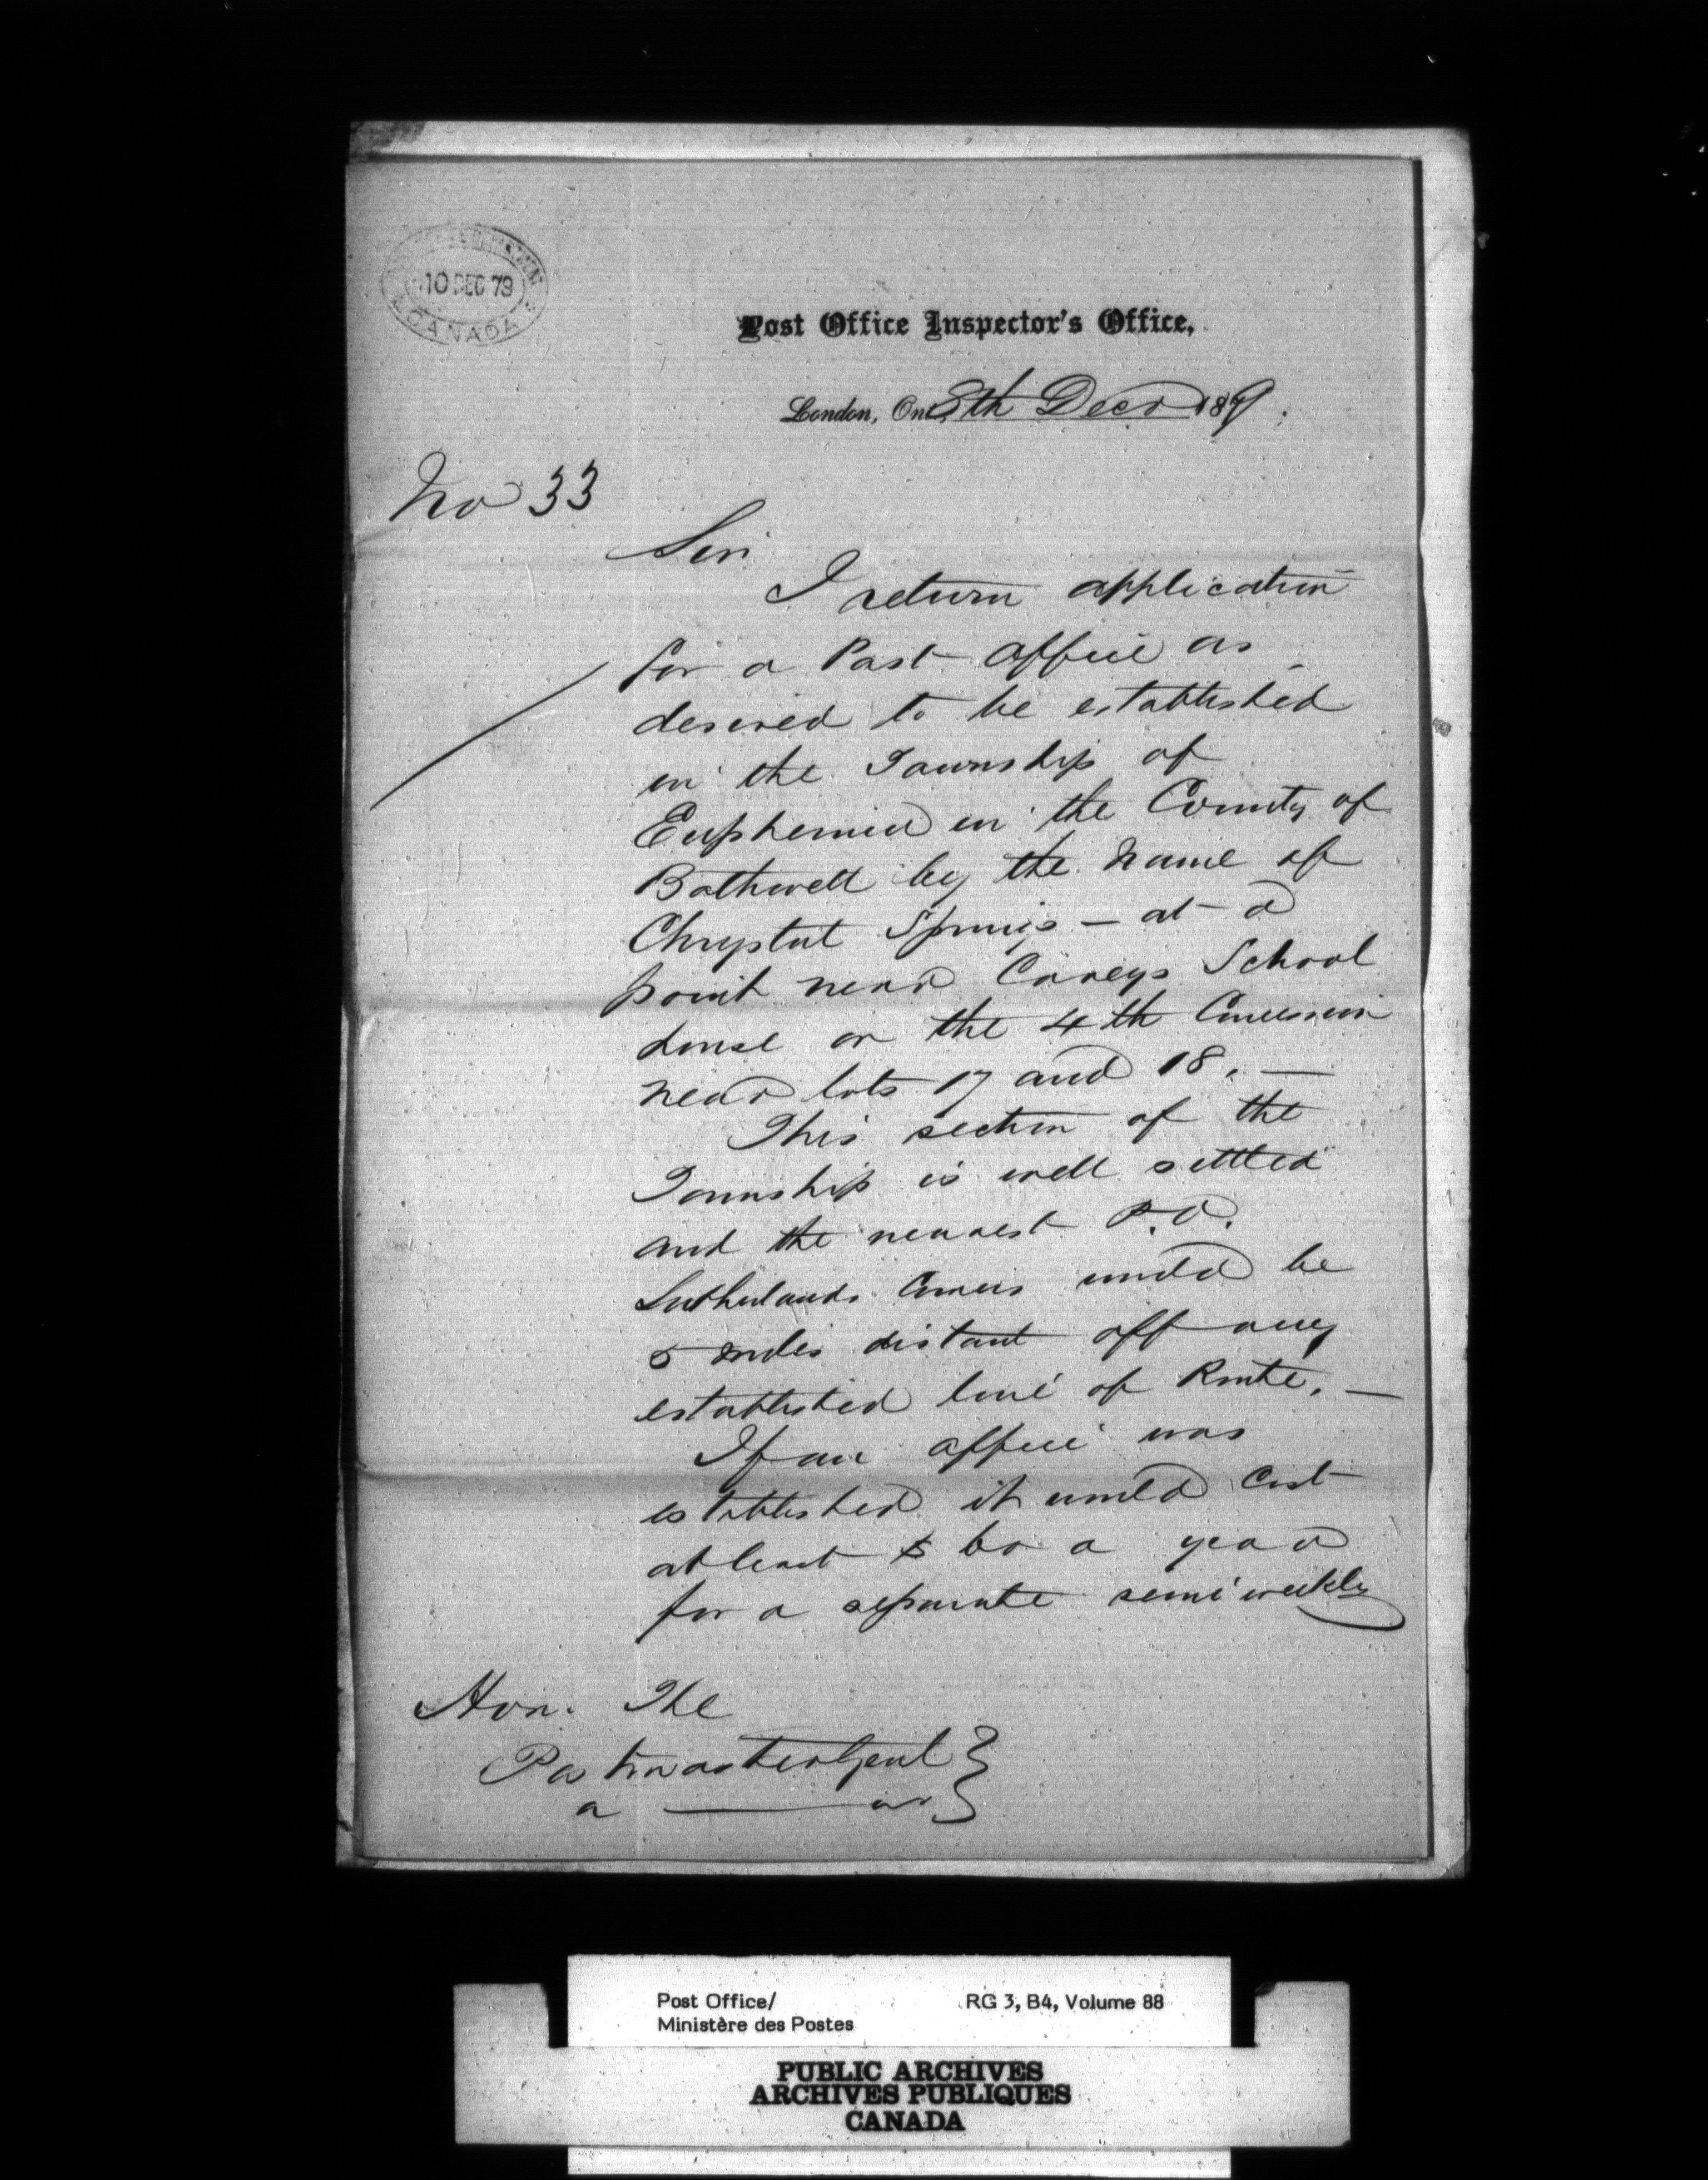 10 DEC 79
CANADA
Post Office Inspector's Office,
London, Ont. 8th Decr 1879.
No 33
Sir
I return application
for a Post Office as
desired to be established
in the Township of
Euphemia in the County of
Bothwell by the name of
Chrystal Springs — at a
point near Careys School
House on the 4th Concession
near lots 17 and 18. —
This section of the
Township is well settled
and the nearest P.O.
Sutherlands Corners would be
5 miles distant off any
established line of Route. —
If an office was
established it would cost
at least $60 a year
for a separate semi weekly
Hon. The
Postmaster Genl
Post Office/
Ministère des Postes
RG 3, B4, Volume 88
PUBLIC ARCHIVES
ARCHIVES PUBLIQUES
CANADA